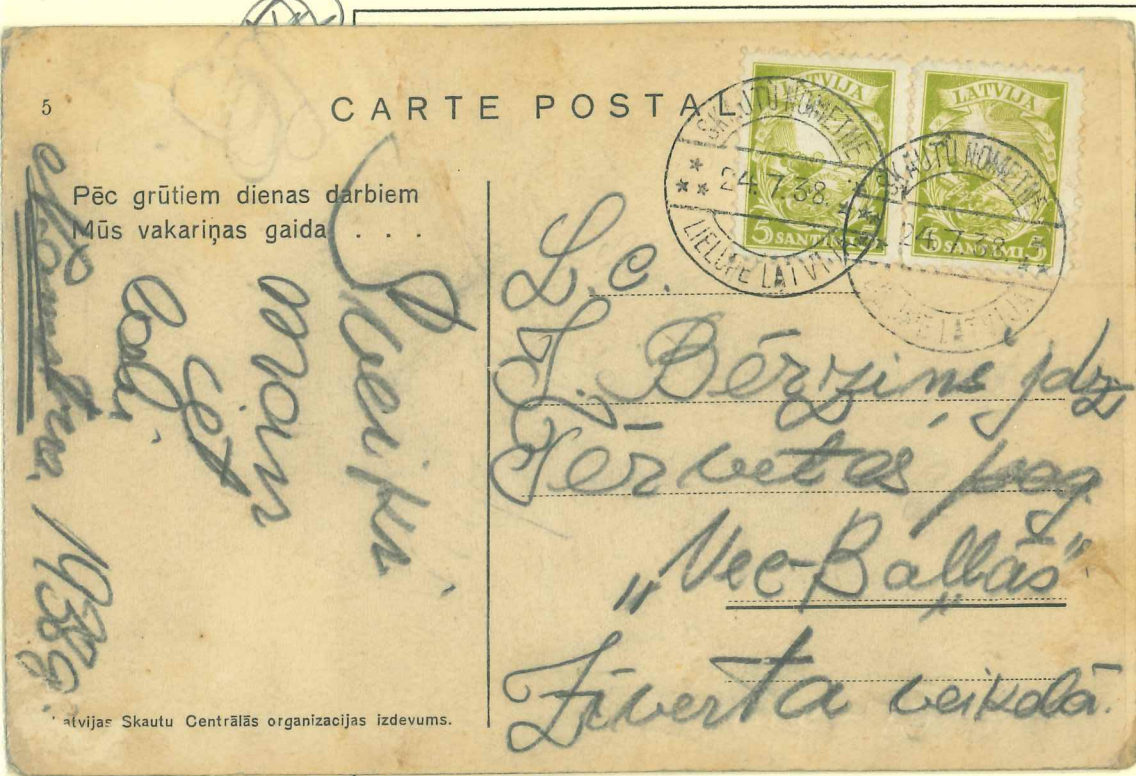 5
CARTE POSTALE
Pēc grūtiem dienas darbiem
Mūs vakariņas gaida . . .
Sveiki
1938g.
Latvijas Skautu Centrālās organizacijas izdevums.
LATVIJA
5 SANTIMI 5
LATVIJA
5 SANTIMI 5
SKAUTU NOMETNE
24.7.38.
LIELUPE LATVIJA
SKAUTU NOMETNE
24.7.38
LIELUPE LATVIJA
L. c.
J. Bērziņš jdz
Tērvetas pag.
„Vec-Baļļās"
Zīverta veikalā.